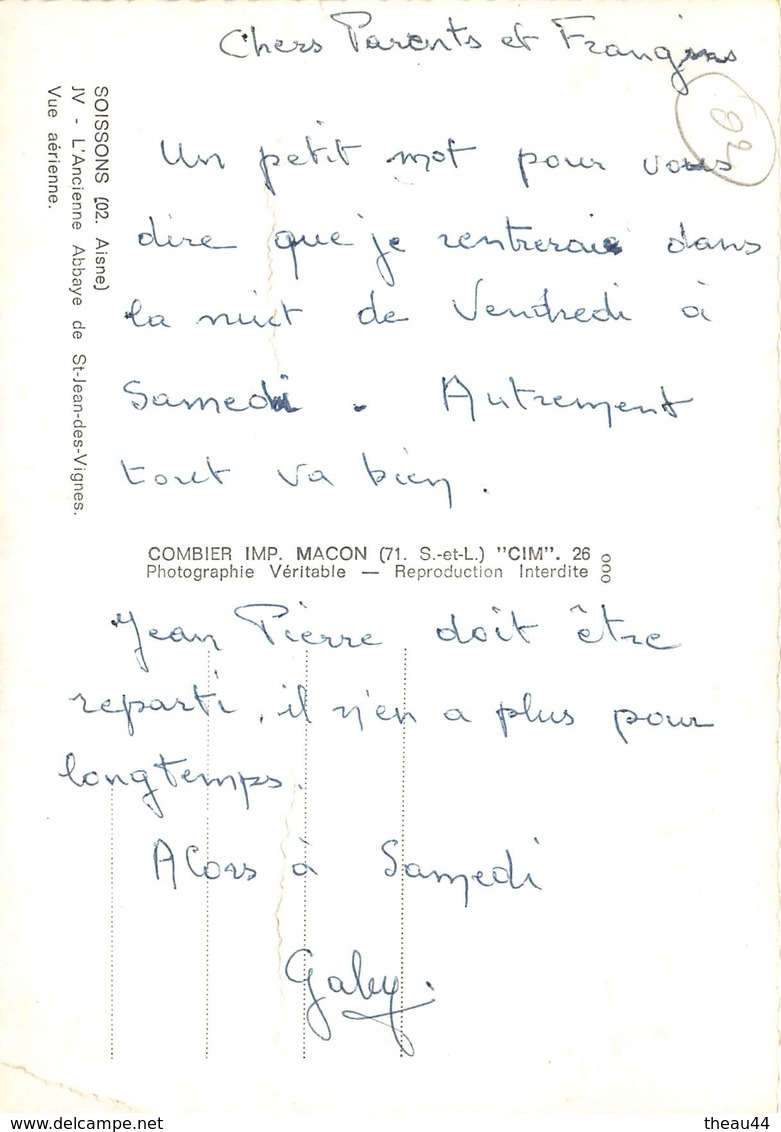 Chers Parents et Frangins
02
Un petit mot pour vous
dire que je rentrerais dans
la nuit de Vendredi à
Samedi. Autrement
tout va bien.
SOISSONS (02. Aisne)
JV - L'Ancienne Abbaye de St-Jean-des-Vignes.
Vue aérienne.
COMBIER IMP. MACON (71. S.-et-L.) "CIM". 26
Photographie Véritable — Reproduction Interdite
Jean Pierre doit être
reparti, il n'en a plus pour
longtemps.
Alors à Samedi
Gaby.
theau44